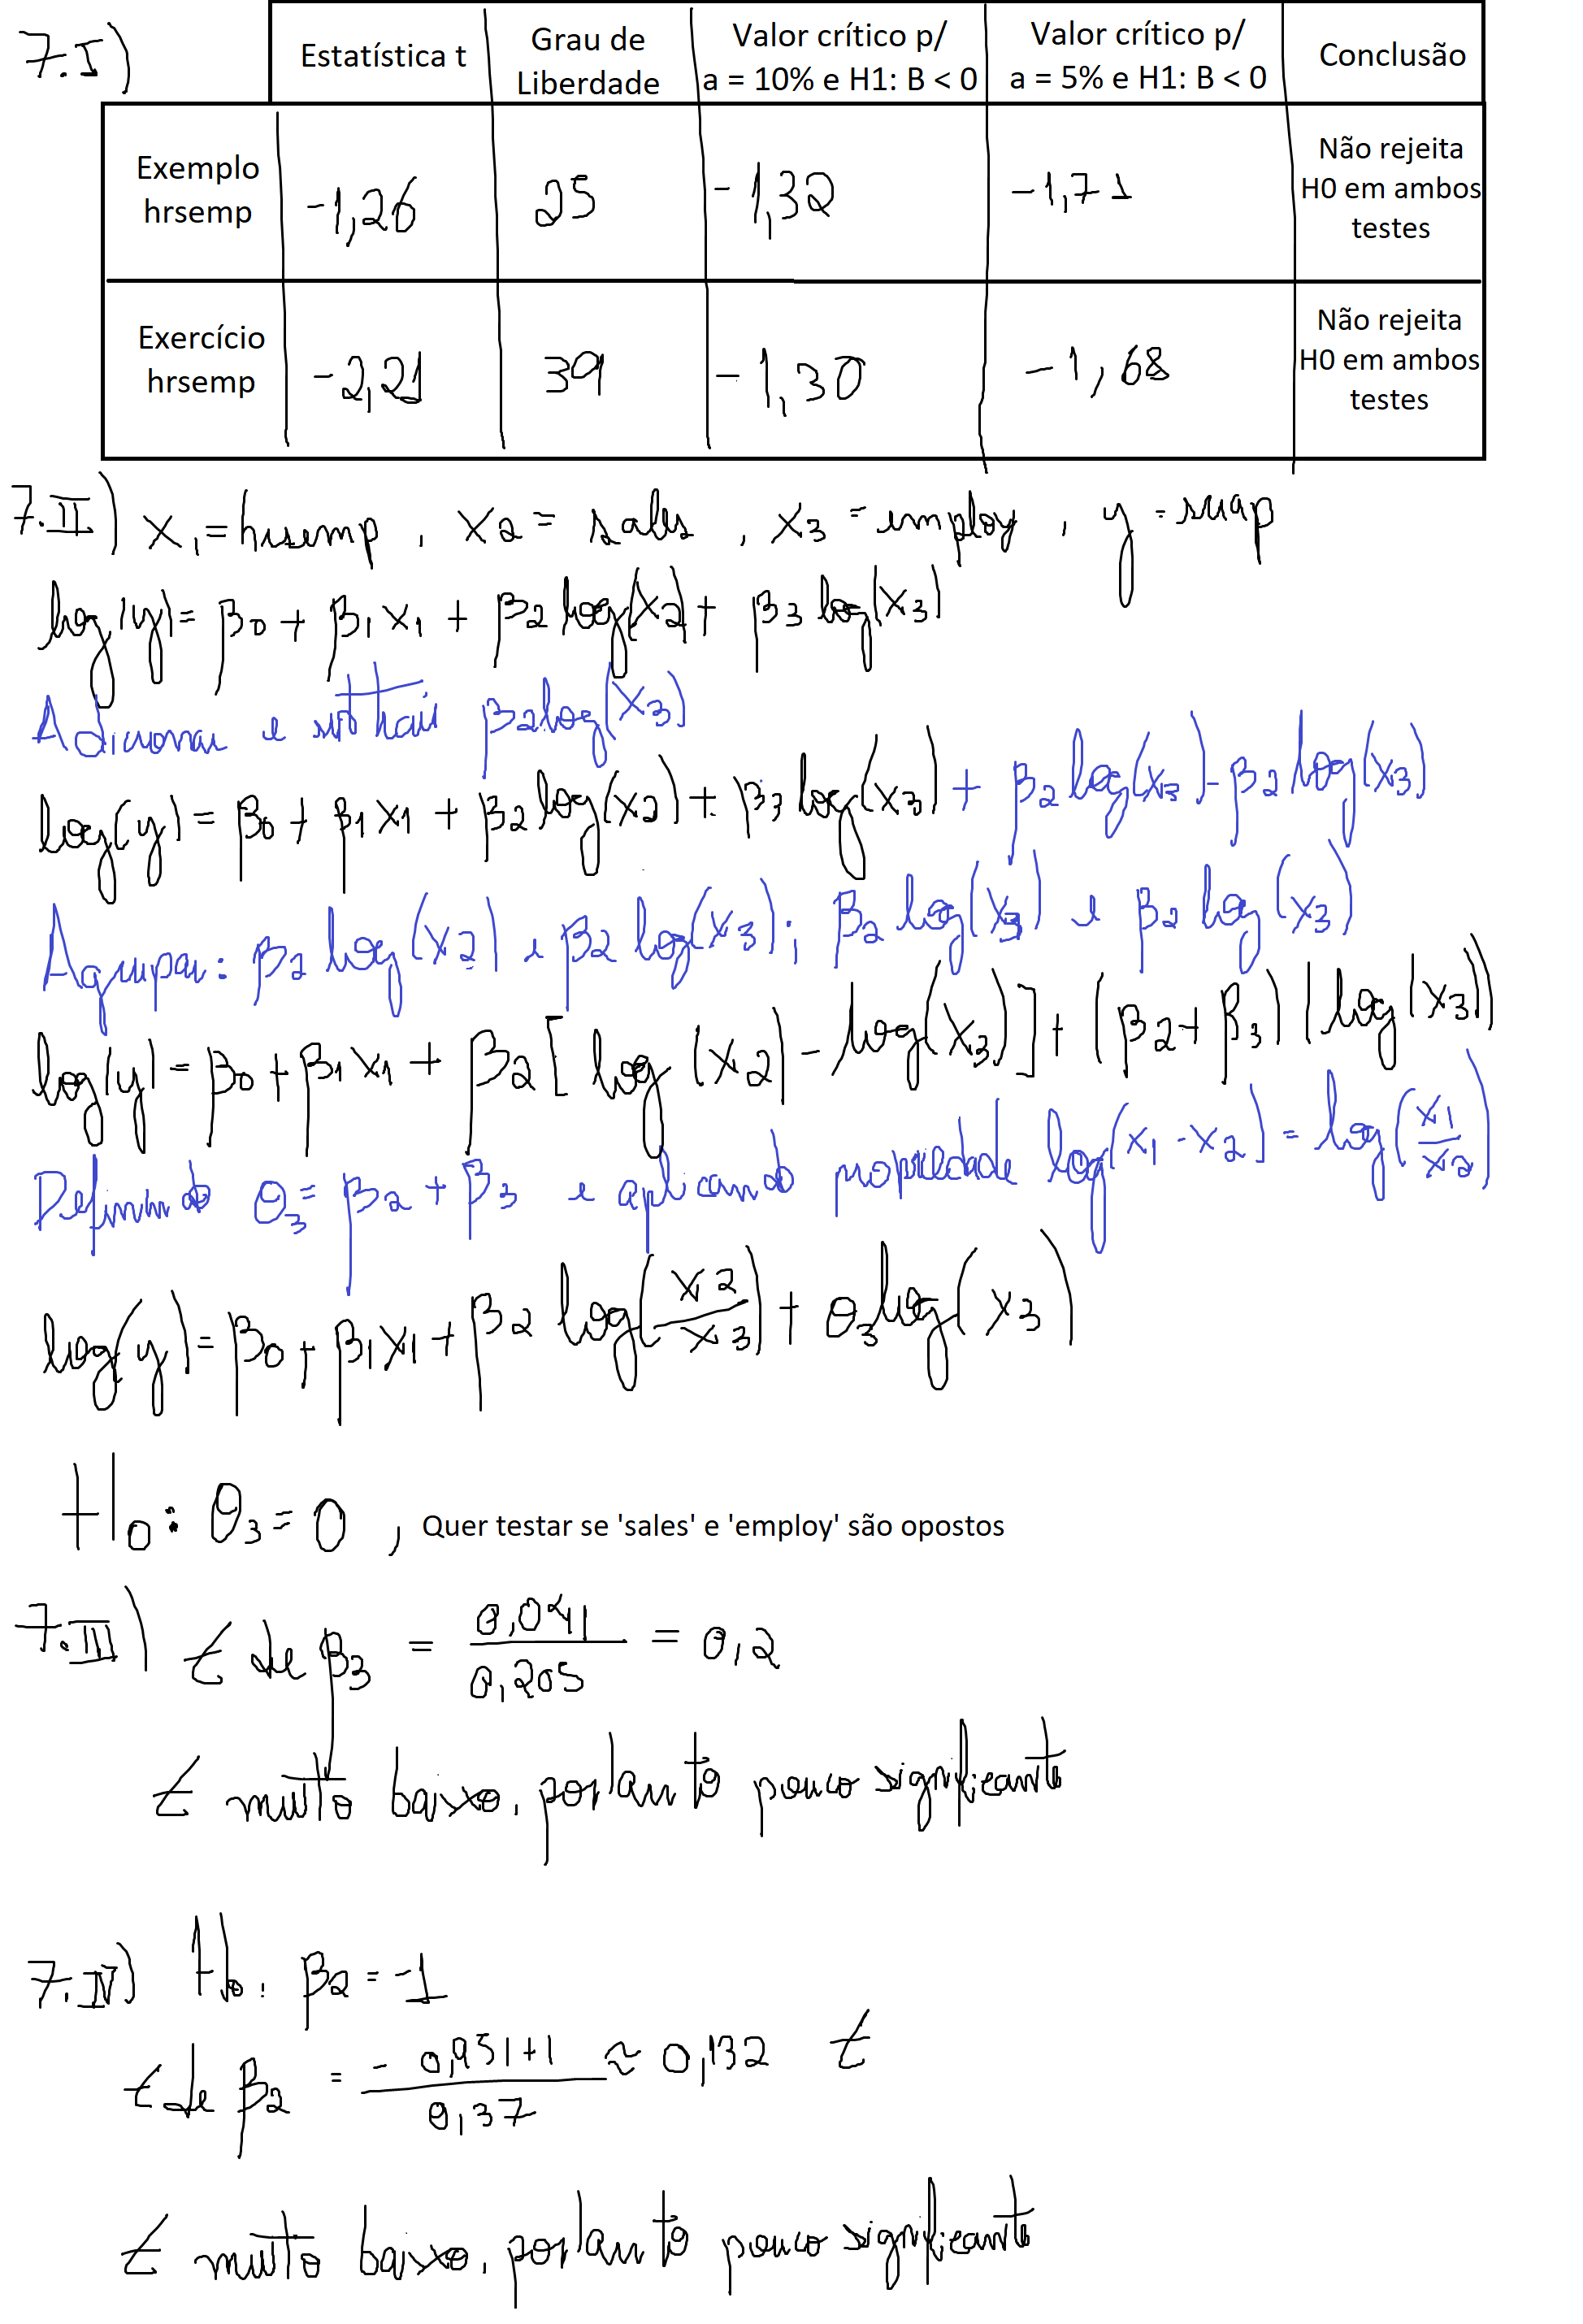 7.I)
Estatística t | Grau de Liberdade | Valor crítico p/ a = 10% e H1: B < 0 | Valor crítico p/ a = 5% e H1: B < 0 | Conclusão
Exemplo hrsemp | -1,26 | 25 | -1,32 | -1,71 | Não rejeita H0 em ambos testes
Exercício hrsemp | -2,21 | 39 | -1,30 | -1,68 | Não rejeita H0 em ambos testes
7.II) x1 = hrsemp, x2 = sales, x3 = employ, y = scrap
log(y) = β0 + β1x1 + β2 log(x2) + β3 log(x3)
Adicionar e subtrair β2 log(x3)
log(y) = β0 + β1x1 + β2 log(x2) + β3 log(x3) + β2 log(x3) - β2 log(x3)
Agrupar: β2 log(x2) e β2 log(x3); β2 log(x3) e β2 log(x3)
log(y) = β0 + β1x1 + β2[log(x2) - log(x3)] + (β2 + β3)(log(x3))
Definindo θ3 = β2 + β3 e aplicando propriedade log(x1 - x2) = log(x1/x2)
log(y) = β0 + β1x1 + β2 log(x2/x3) + θ3 log(x3)
H0: θ3 = 0, Quer testar se 'sales' e 'employ' são opostos
7.III) t de β3 = 0,041/0,205 = 0,2
t muito baixo, portanto pouco significante
7.IV) H0: β2 = -1
t de β2 = -0,951+1/0,37 ≈ 0,132 t
t muito baixo, portanto pouco significante